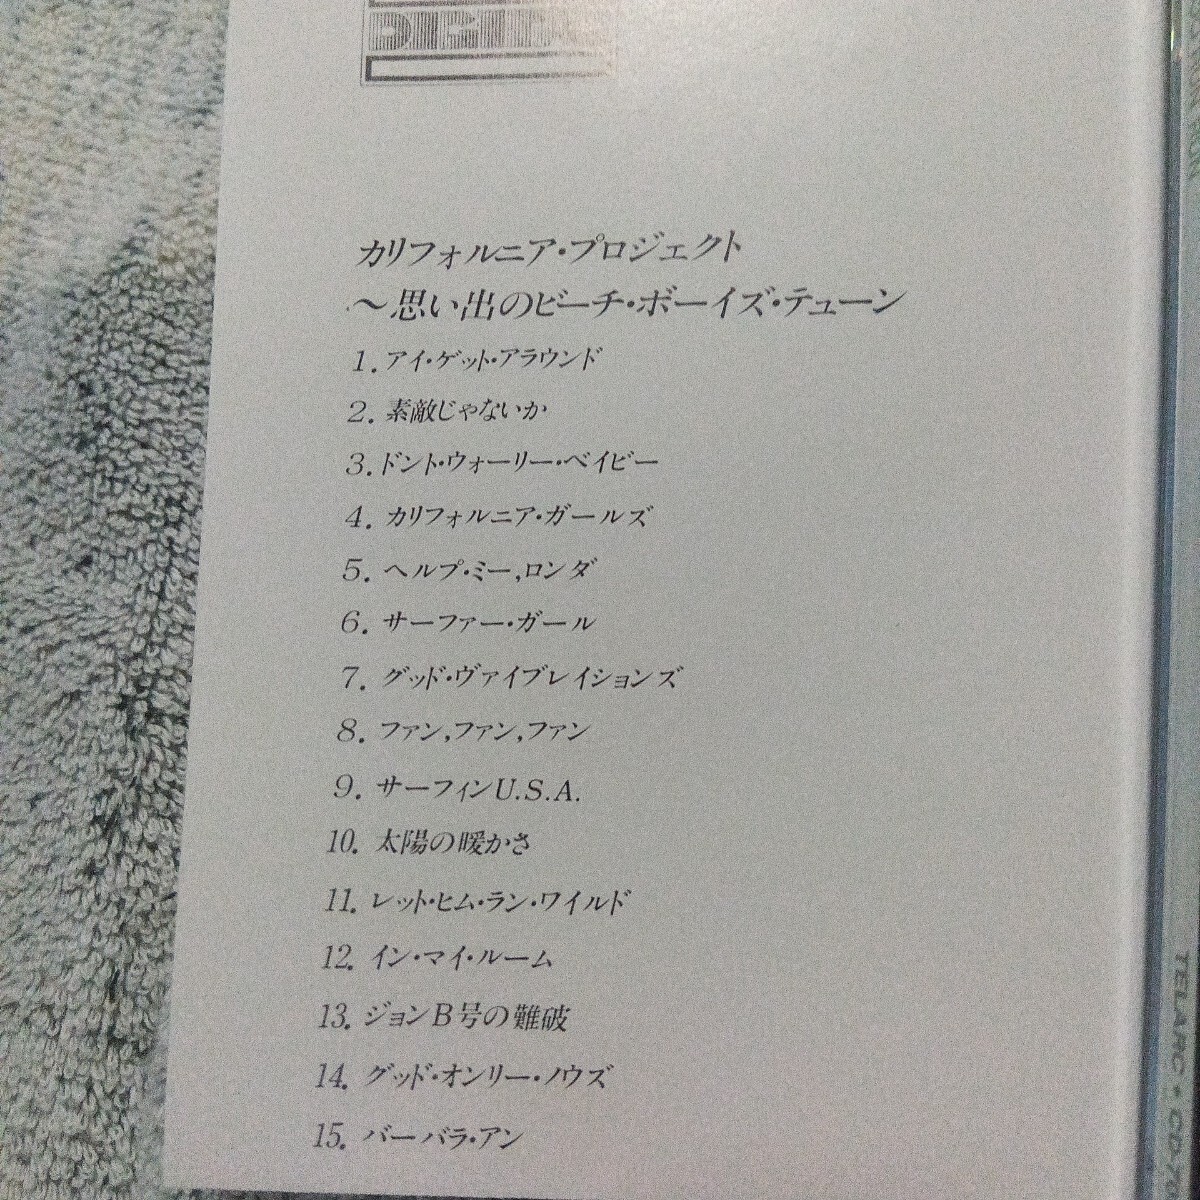 DIGITAL
カリフォルニア・プロジェクト
〜思い出のビーチ・ボーイズ・テューン
1. アイ・ゲット・アラウンド
2. 素敵じゃないか
3. ドント・ウォーリー・ベイビー
4. カリフォルニア・ガールズ
5. ヘルプ・ミー,ロンダ
6. サーファー・ガール
7. グッド・ヴァイブレイションズ
8. ファン,ファン,ファン
9. サーフィンU.S.A.
10. 太陽の暖かさ
11. レット・ヒム・ラン・ワイルド
12. イン・マイ・ルーム
13. ジョンB号の難破
14. グッド・オンリー・ノウズ
15. バーバラ・アン
TELARC • CD-7